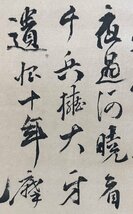 夜過河曉看
千兵擁大牙
遺恨十年磨